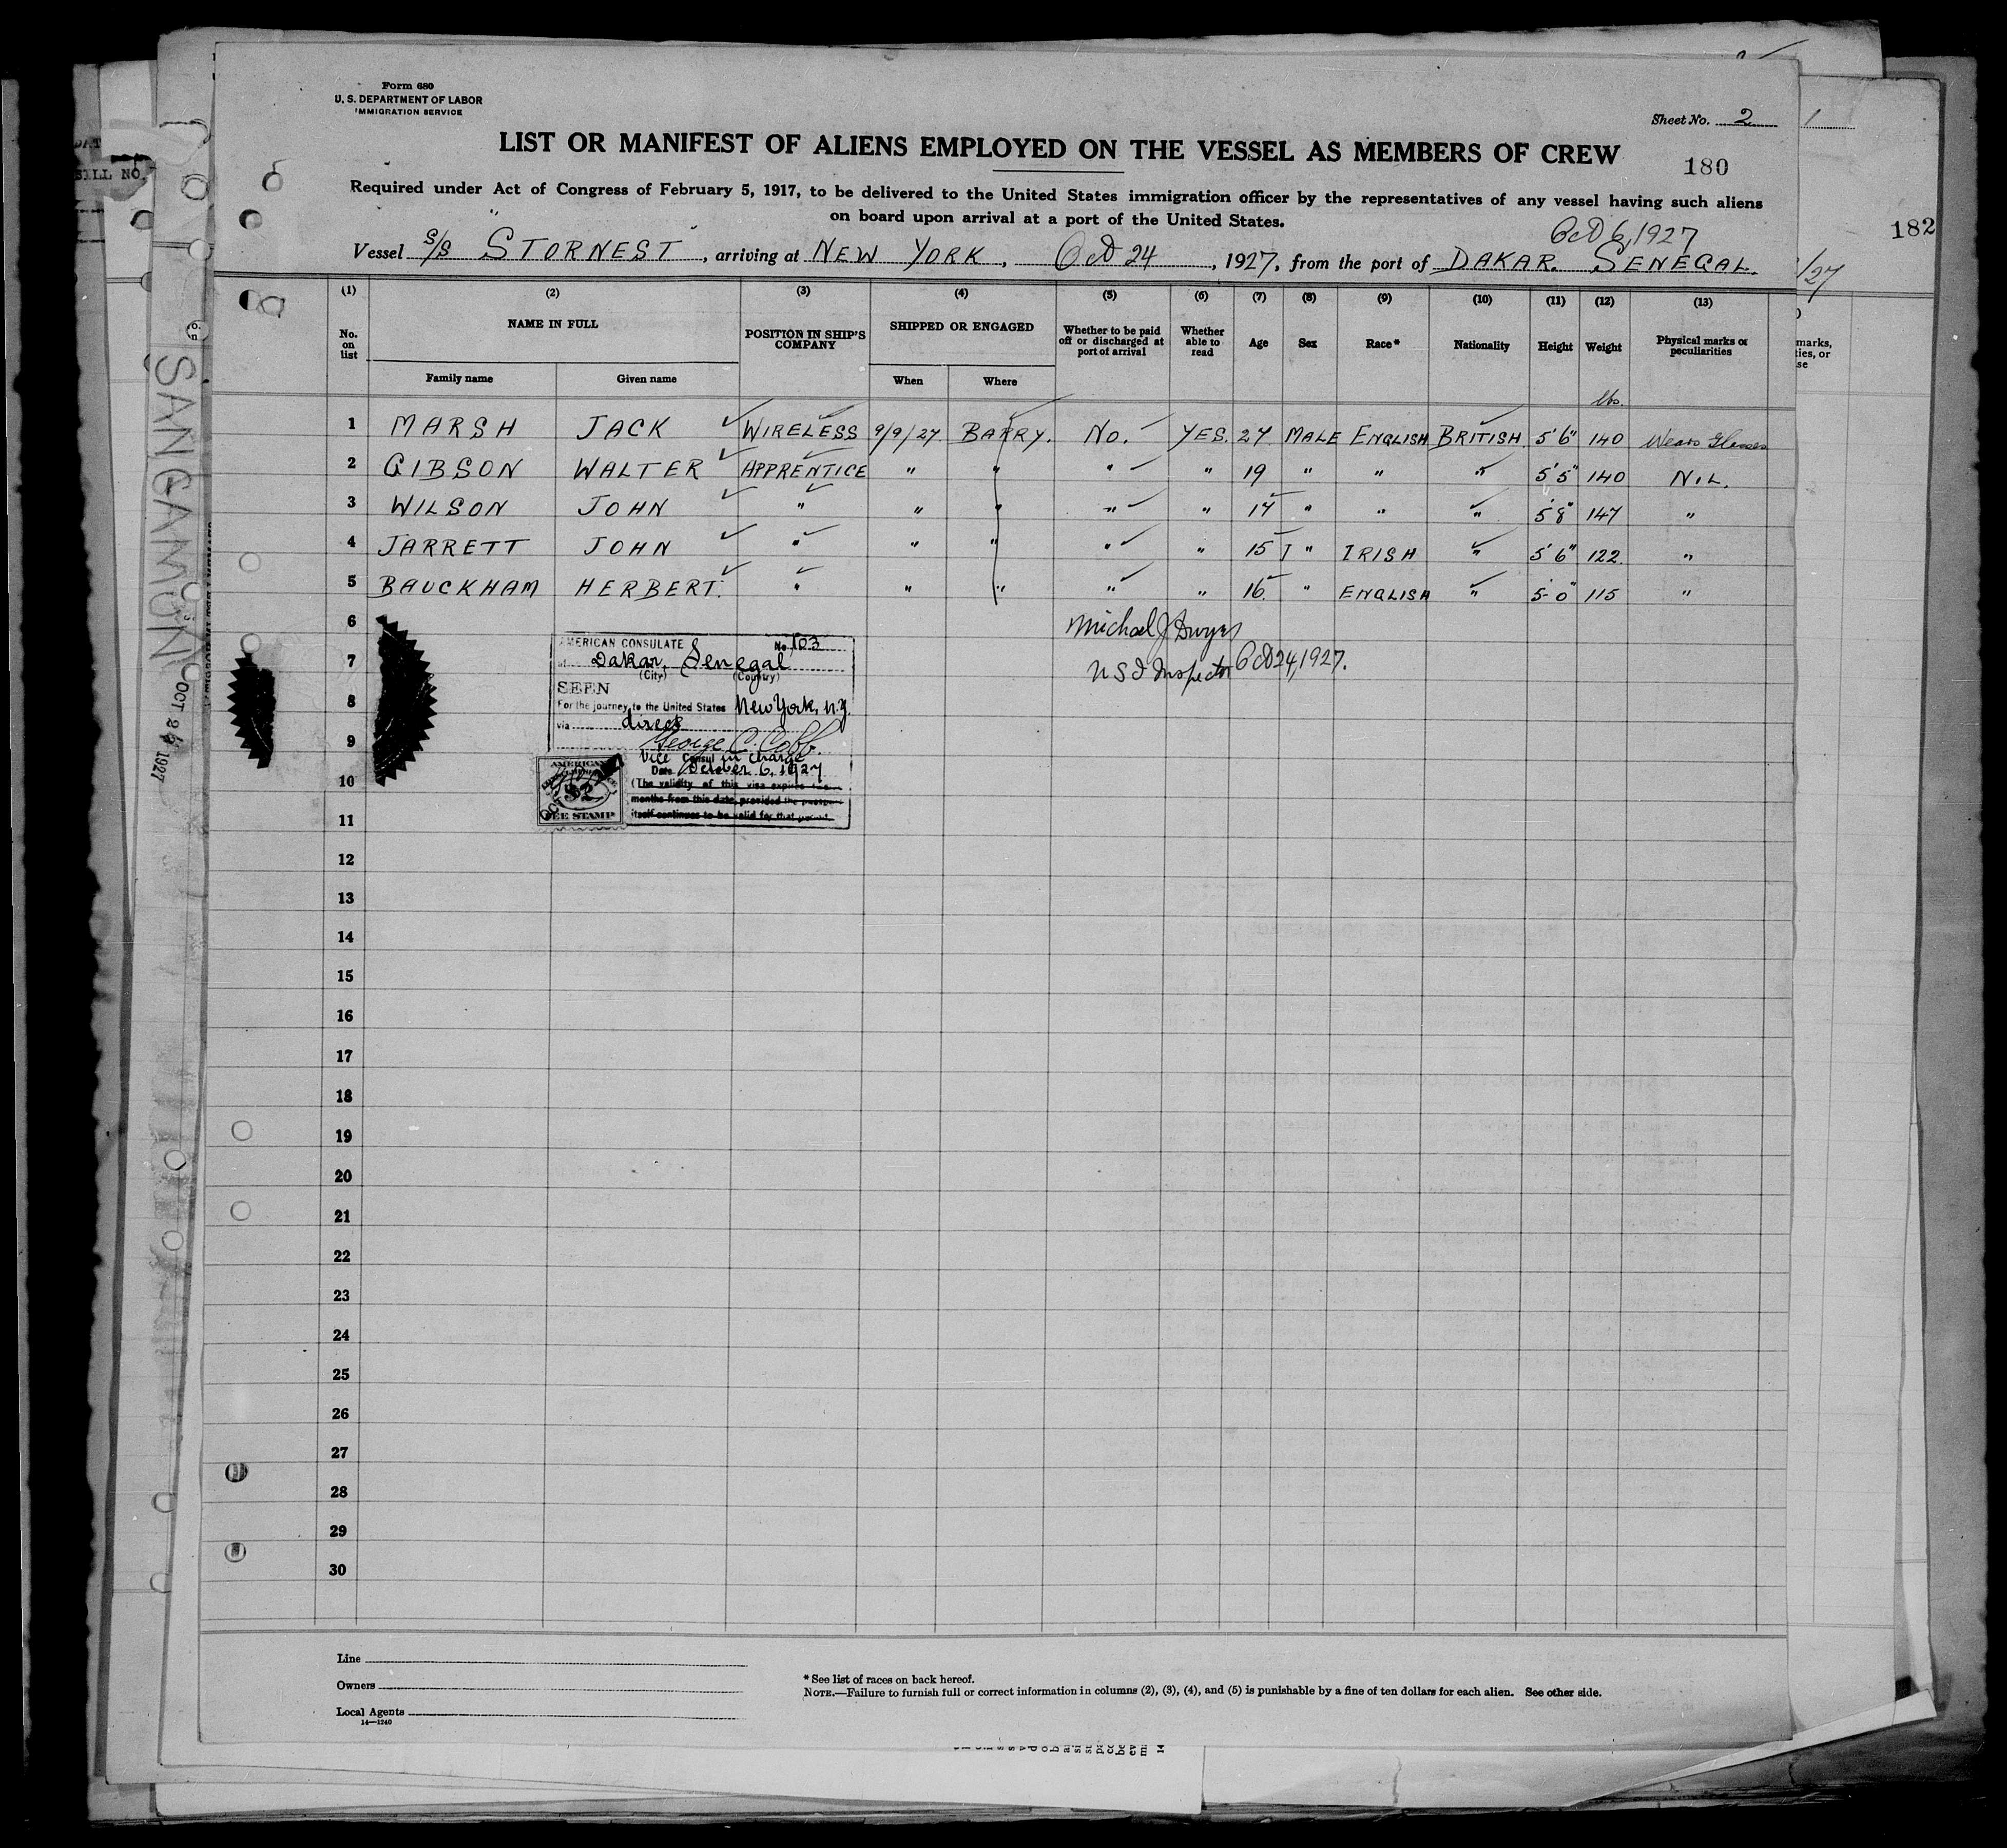 Form 680
U. S. DEPARTMENT OF LABOR
IMMIGRATION SERVICE
Sheet No. 2
1
LIST OR MANIFEST OF ALIENS EMPLOYED ON THE VESSEL AS MEMBERS OF CREW
180
Required under Act of Congress of February 5, 1917, to be delivered to the United States immigration officer by the representatives of any vessel having such aliens
on board upon arrival at a port of the United States.
182
Oct 6, 1927
Vessel S/S STORNEST, arriving at NEW YORK, Oct 24, 1927, from the port of DAKAR. SENEGAL.
/27
(1) (2) (3) (4) (5) (6) (7) (8) (9) (10) (11) (12) (13)
No. on list NAME IN FULL POSITION IN SHIP'S COMPANY SHIPPED OR ENGAGED Whether to be paid off or discharged at port of arrival Whether able to read Age Sex Race* Nationality Height Weight Physical marks or peculiarities
marks,
ties, or
se
Family name Given name When Where
lbs.
1 MARSH JACK WIRELESS 9/9/27 BARRY. No. YES. 27 MALE ENGLISH BRITISH. 5'6" 140 Wears Glasses
2 GIBSON WALTER APPRENTICE " " " " 19 " " " 5'5" 140 NIL.
3 WILSON JOHN " " " " " 17 " " " 5'8" 147 "
4 JARRETT JOHN " " " " " 15 " IRISH " 5'6" 122 "
5 BAUCKHAM HERBERT. " " " " " 16 " ENGLISH " 5-0" 115 "
6 Michael J Dwyer
7 U S I Inspector Oct 24, 1927.
8
9
10
11
12
13
14
15
16
17
18
19
20
21
22
23
24
25
26
27
28
29
30
AMERICAN CONSULATE No. 103
at Dakar, Senegal
(City) (Country)
SEEN
For the journey to the United States New York, N.Y.
via direct
George C. Cobb.
Vice Consul in charge
Date October 6, 1927
(The validity of this visa expires
months from this date, provided the passport
itself continues to be valid for that period.
AMERICAN
$2
FEE STAMP
SANGAMON
OCT 24 1927
SELL NO.
Line
Owners
Local Agents
14—1240
* See list of races on back hereof.
NOTE.—Failure to furnish full or correct information in columns (2), (3), (4), and (5) is punishable by a fine of ten dollars for each alien. See other side.